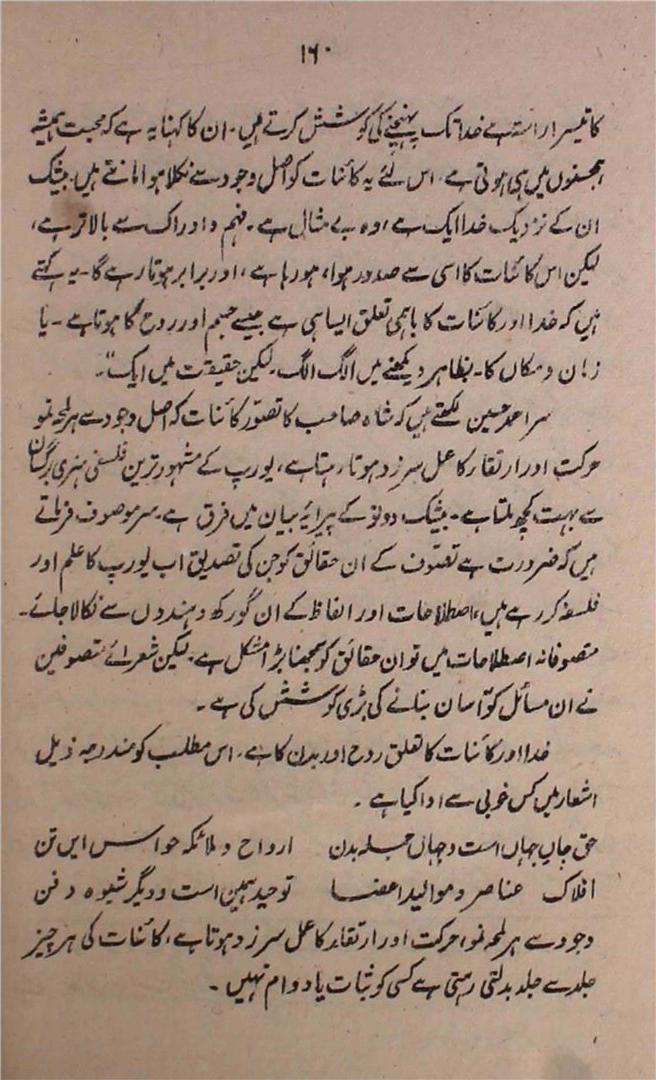 ۱۶۰
کا تیسرا راستہ ہے خدا تک پہنچنے کی کوشش کرتے ہیں۔ ان کا کہنا یہ ہے کہ محبت ہمیشہ
ہمجنسوں میں ہی ہوتی ہے۔ اس لئے یہ کائنات کو اصل وجود سے نکلا ہوا مانتے ہیں۔ بیشک
ان کے نزدیک خدا ایک ہے، وہ بے مثال ہے۔ فہم و ادراک سے بالاتر ہے،
لیکن اس کائنات کا اسی سے صدور ہوا، ہو رہا ہے، اور برابر ہوتا رہے گا۔ یہ کہتے
ہیں کہ خدا اور کائنات کا باہمی تعلق ایسا ہی ہے جیسے جسم اور روح کا ہوتا ہے۔ یا
زمان و مکان کا۔ بظاہر دیکھنے میں الگ الگ۔ لیکن حقیقت میں ایک"۔
سر احمد حسین لکھتے ہیں کہ شاہ صاحب کا تصور کائنات کہ اصل وجود سے ہر لمحہ نمو
حرکت اور ارتقار کا عمل سرزد ہوتا رہتا ہے، یورپ کے مشہور ترین فلسفی ہنری برگساں
سے بہت کچھ ملتا ہے۔ بیشک دونو کے پیرایۂ بیان میں فرق ہے۔ سر موصوف فرماتے
ہیں کہ ضرورت ہے تصوف کے ان حقائق کو جن کی تصدیق اب یورپ کا علم اور
فلسفہ کر رہے ہیں، اصطلاحات اور الفاظ کے ان گورکھ دہندوں سے نکالا جائے۔
متصوفانہ اصطلاحات میں تو ان حقائق کو سمجھنا بڑا مشکل ہے۔ لیکن شعرائے متصوفین
نے ان مسائل کو آسان بنانے کی بڑی کوشش کی ہے۔
خدا اور کائنات کا تعلق روح اور بدن کا ہے۔ اس مطلب کو مندرجہ ذیل
اشعار میں کس خوبی سے ادا کیا ہے۔
حق جانِ جہاں است و جہاں جملہ بدن ارواح و ملائکہ حواس ایں تن
افلاک عناصر و موالید اعضا توحید ہمین است و دیگر شیوہ و فن
وجود سے ہر لمحہ نمو، حرکت اور ارتقار کا عمل سرزد ہوتا ہے، کائنات کی ہر چیز
جلد سے جلد بدلتی رہتی ہے کسی کو ثبات یا دوام نہیں۔